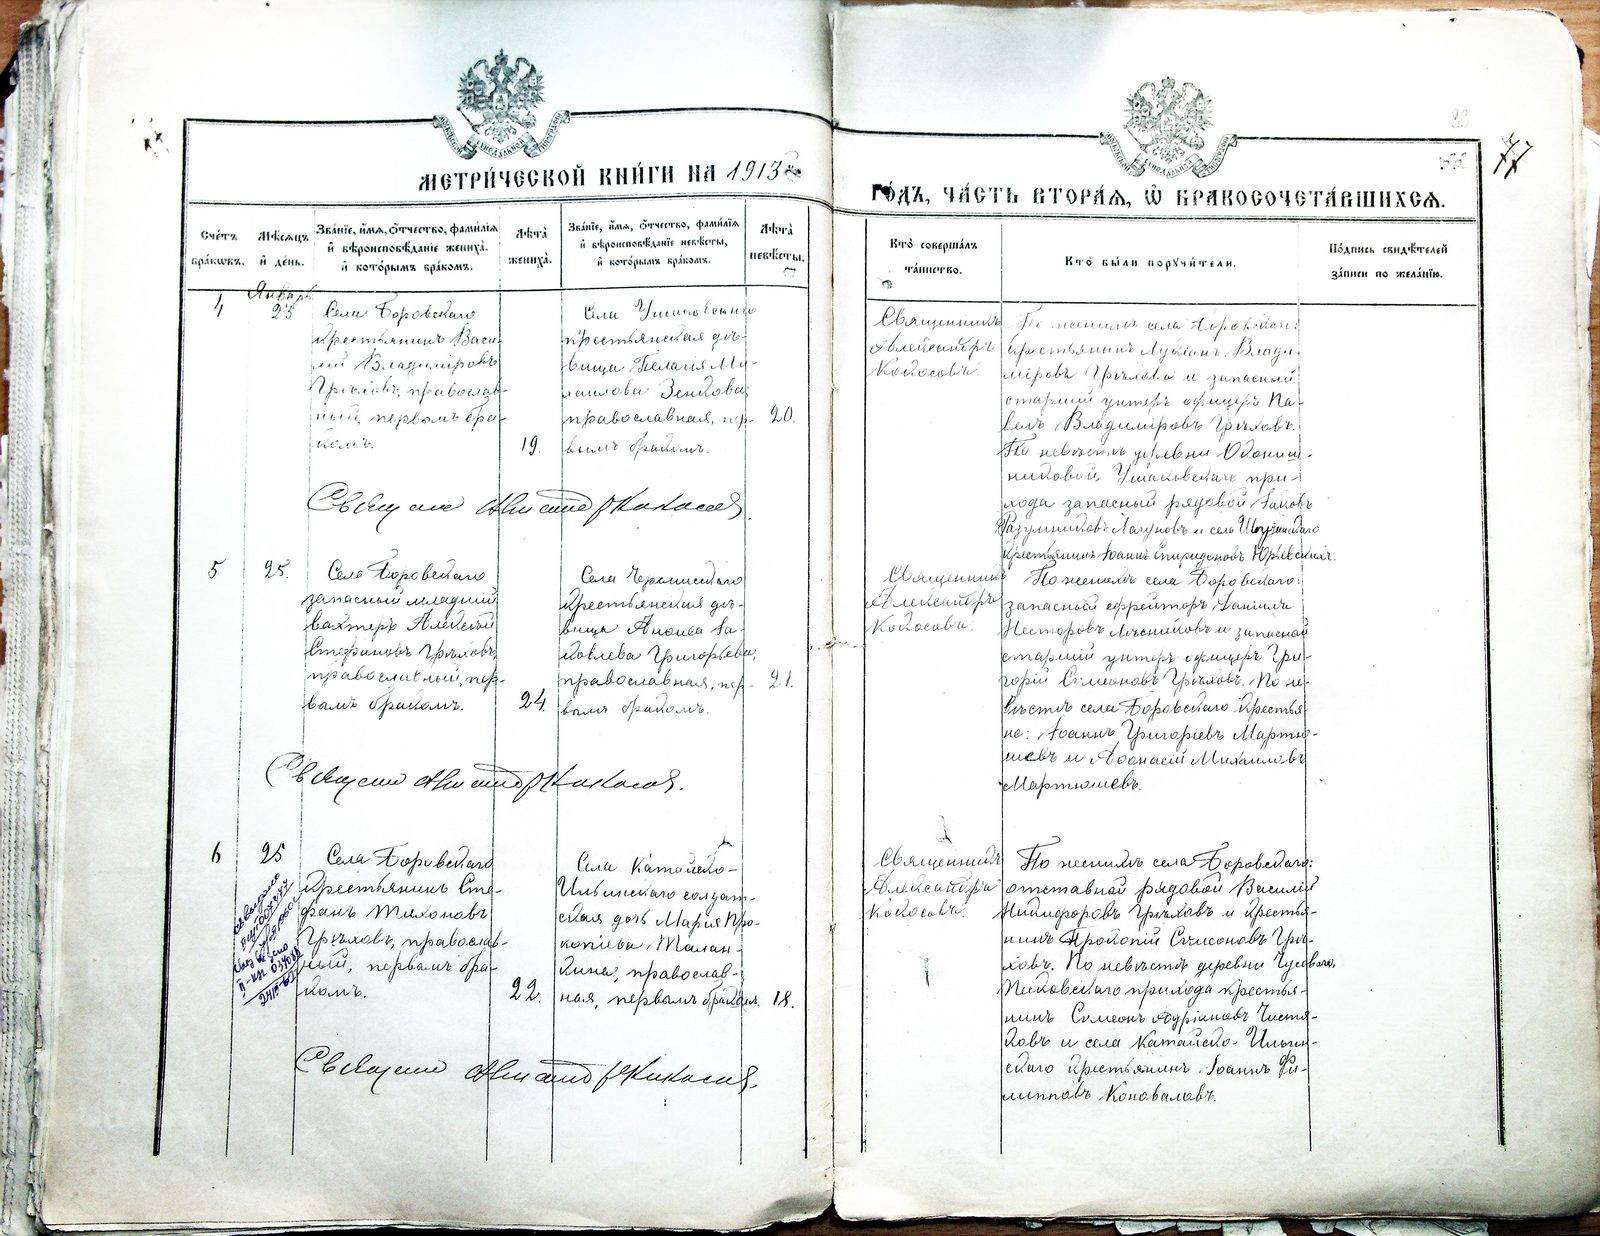 МЕТРИ́ЧЕСКОЙ КНИ́ГИ НА 1913
ГО́ДЪ, ЧА́СТЬ ВТОРА́Я, Ѽ БРАКОСОЧЕТА́ВШИХСЯ.
77
Сче́тъ бра́ковъ.
Мѣ́сяцъ и҆ де́нь.
Зва́нїе, и҆́мя, ѻ҆́тчество, фами́лїя
и҆ вѣроисповѣ́данїе жениха̀.
и҆ кото́рымъ бра́комъ.
Лѣ́та жениха̀.
Зва́нїе, и҆́мя, ѻ҆́тчество, фами́лїя
и҆ вѣроисповѣ́данїе невѣ́сты,
и҆ кото́рымъ бра́комъ.
Лѣ́та невѣ́сты.
Кто̀ соверша́лъ
та́инство.
Кто̀ бы́ли поручи́тели.
По́дпись свидѣ́телей
за́писи по жела́нїю.
4
Январь
25
Села Боровскаго
крестьянинъ Васи-
лій Владиміровъ
Грѣховъ, православ-
ный, первымъ бра-
комъ.
19.
Села Ушаковскаго
крестьянская дѣ-
вица Пелагія Ми-
хаилова Зенкова,
православная, пер-
вымъ бракомъ.
20.
Священникъ
Александръ
Кокосовъ.
По женихѣ села Боровскаго:
крестьянинъ Лукіанъ Влади-
міровъ Грѣховъ и запасный
старшій унтеръ офицеръ Па-
велъ Владиміровъ Грѣховъ.
По невѣстѣ деревни
Ушаковскаго при-
хода запасный рядовой Іаковъ
Лагуновъ и села
крестьянинъ Іоаннъ Спиридоновъ Юрьевскихъ.
Священникъ Александръ Кокосовъ.
5
25.
Села Боровскаго
запасный младшій
вахтеръ Алексій
Стефановъ Грѣховъ,
православный, пер-
вымъ бракомъ.
24.
Села Черемисскаго
крестьянская дѣ-
вица Анѳиса Іа-
ковлева Григорьева,
православная, пер-
вымъ бракомъ.
21.
Священникъ
Александръ
Кокосовъ.
По женихѣ села Боровскаго:
запасный ефрейторъ Даніилъ
Несторовъ Лѣсниковъ и запасной
старшій унтеръ офицеръ Гри-
горій Симеоновъ Грѣховъ. По не-
вѣстѣ села Боровскаго крестья-
не: Іоаннъ Григоріевъ Мартю-
шевъ и Аѳанасій Михаиловъ
Мартюшевъ.
Священникъ Александръ Кокосовъ.
6
25
Села Боровскаго
крестьянинъ Сте-
фанъ Тихоновъ
Грѣховъ, православ-
ный, первымъ бра-
комъ.
22.
Села Катайско-
Ильинскаго солдат-
ская дочь Марія Про-
копіева Талан-
кина, православ-
ная, первымъ бракомъ.
18.
Священникъ
Александръ
Кокосовъ.
По женихѣ села Боровскаго:
отставной рядовой Василій
Никифоровъ Грѣховъ и крестья-
нинъ Прокопій Симеоновъ Грѣ-
ховъ. По невѣстѣ деревни Чусовой,
Песковскаго прихода крестья-
нинъ Симеонъ Адріановъ Чистя-
ковъ и села Катайско-Ильин-
скаго крестьянинъ Іоаннъ Фи-
липповъ Коноваловъ.
Священникъ Александръ Кокосовъ.